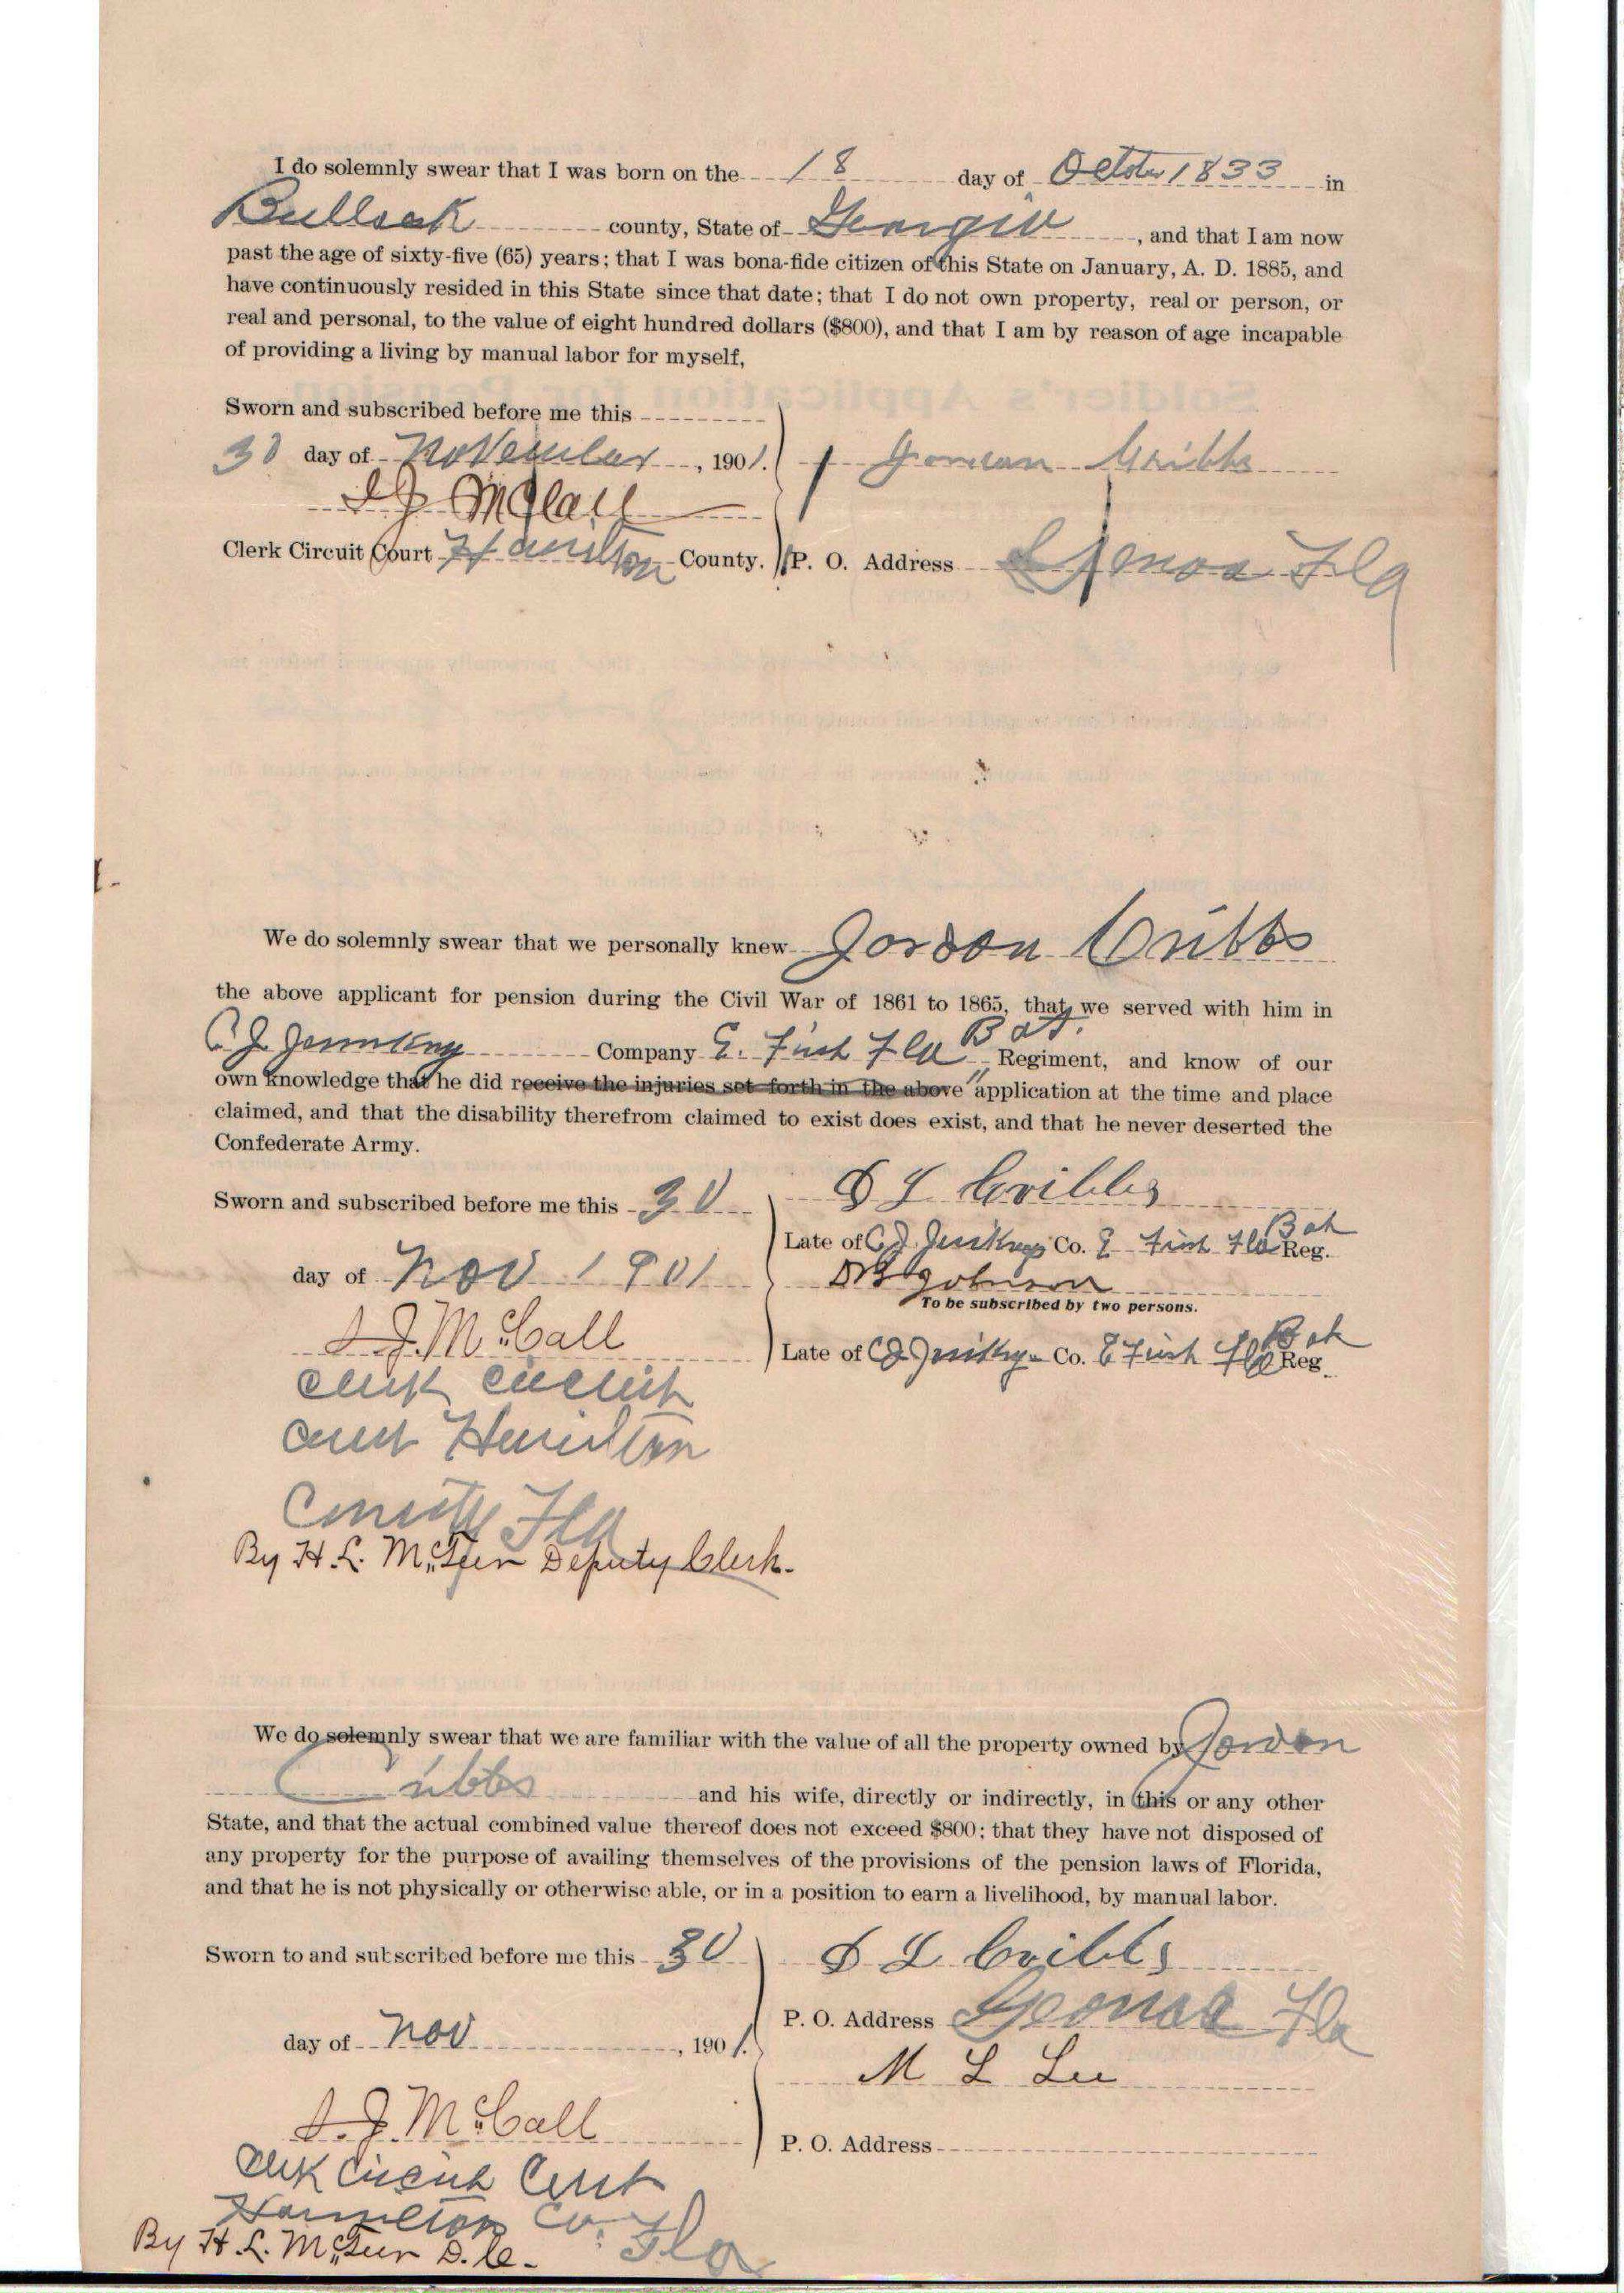 I do solemnly swear that I was born on the 18 day of October 1833 in
Bullock county, State of Georgia, and that I am now
past the age of sixty-five (65) years; that I was bona-fide citizen of this State on January, A. D. 1885, and
have continuously resided in this State since that date; that I do not own property, real or person, or
real and personal, to the value of eight hundred dollars ($800), and that I am by reason of age incapable
of providing a living by manual labor for myself,
Sworn and subscribed before me this
30 day of November, 1901. Jordan Cribbs
S J McCall
Clerk Circuit Court Hamilton County. P. O. Address Genoa Fla
We do solemnly swear that we personally knew Jordon Cribbs
the above applicant for pension during the Civil War of 1861 to 1865, that we served with him in
C J Company E. First Fla Bat. Regiment, and know of our
own knowledge that he did receive the injuries set forth in the above application at the time and place
claimed, and that the disability therefrom claimed to exist does exist, and that he never deserted the
Confederate Army.
Sworn and subscribed before me this 30 S L Cribbs
Late of C J Co. E First Fla Bat Reg.
day of Nov 1901 D B Johnson
To be subscribed by two persons.
S. J. McCall
Late of C J Co. E First Fla Bat Reg.
Clerk Circuit
Court Hamilton
County Fla
By H. L. McTeer Deputy Clerk.
We do solemnly swear that we are familiar with the value of all the property owned by Jordon
Cribbs and his wife, directly or indirectly, in this or any other
State, and that the actual combined value thereof does not exceed $800; that they have not disposed of
any property for the purpose of availing themselves of the provisions of the pension laws of Florida,
and that he is not physically or otherwise able, or in a position to earn a livelihood, by manual labor.
Sworn to and subscribed before me this 30 S L Cribbs
P. O. Address Genoa Fla
day of Nov, 1901.
M L Lee
S. J. McCall
P. O. Address
Clerk Circuit Court
Hamilton Co. Fla
By H. L. McTeer D. C.